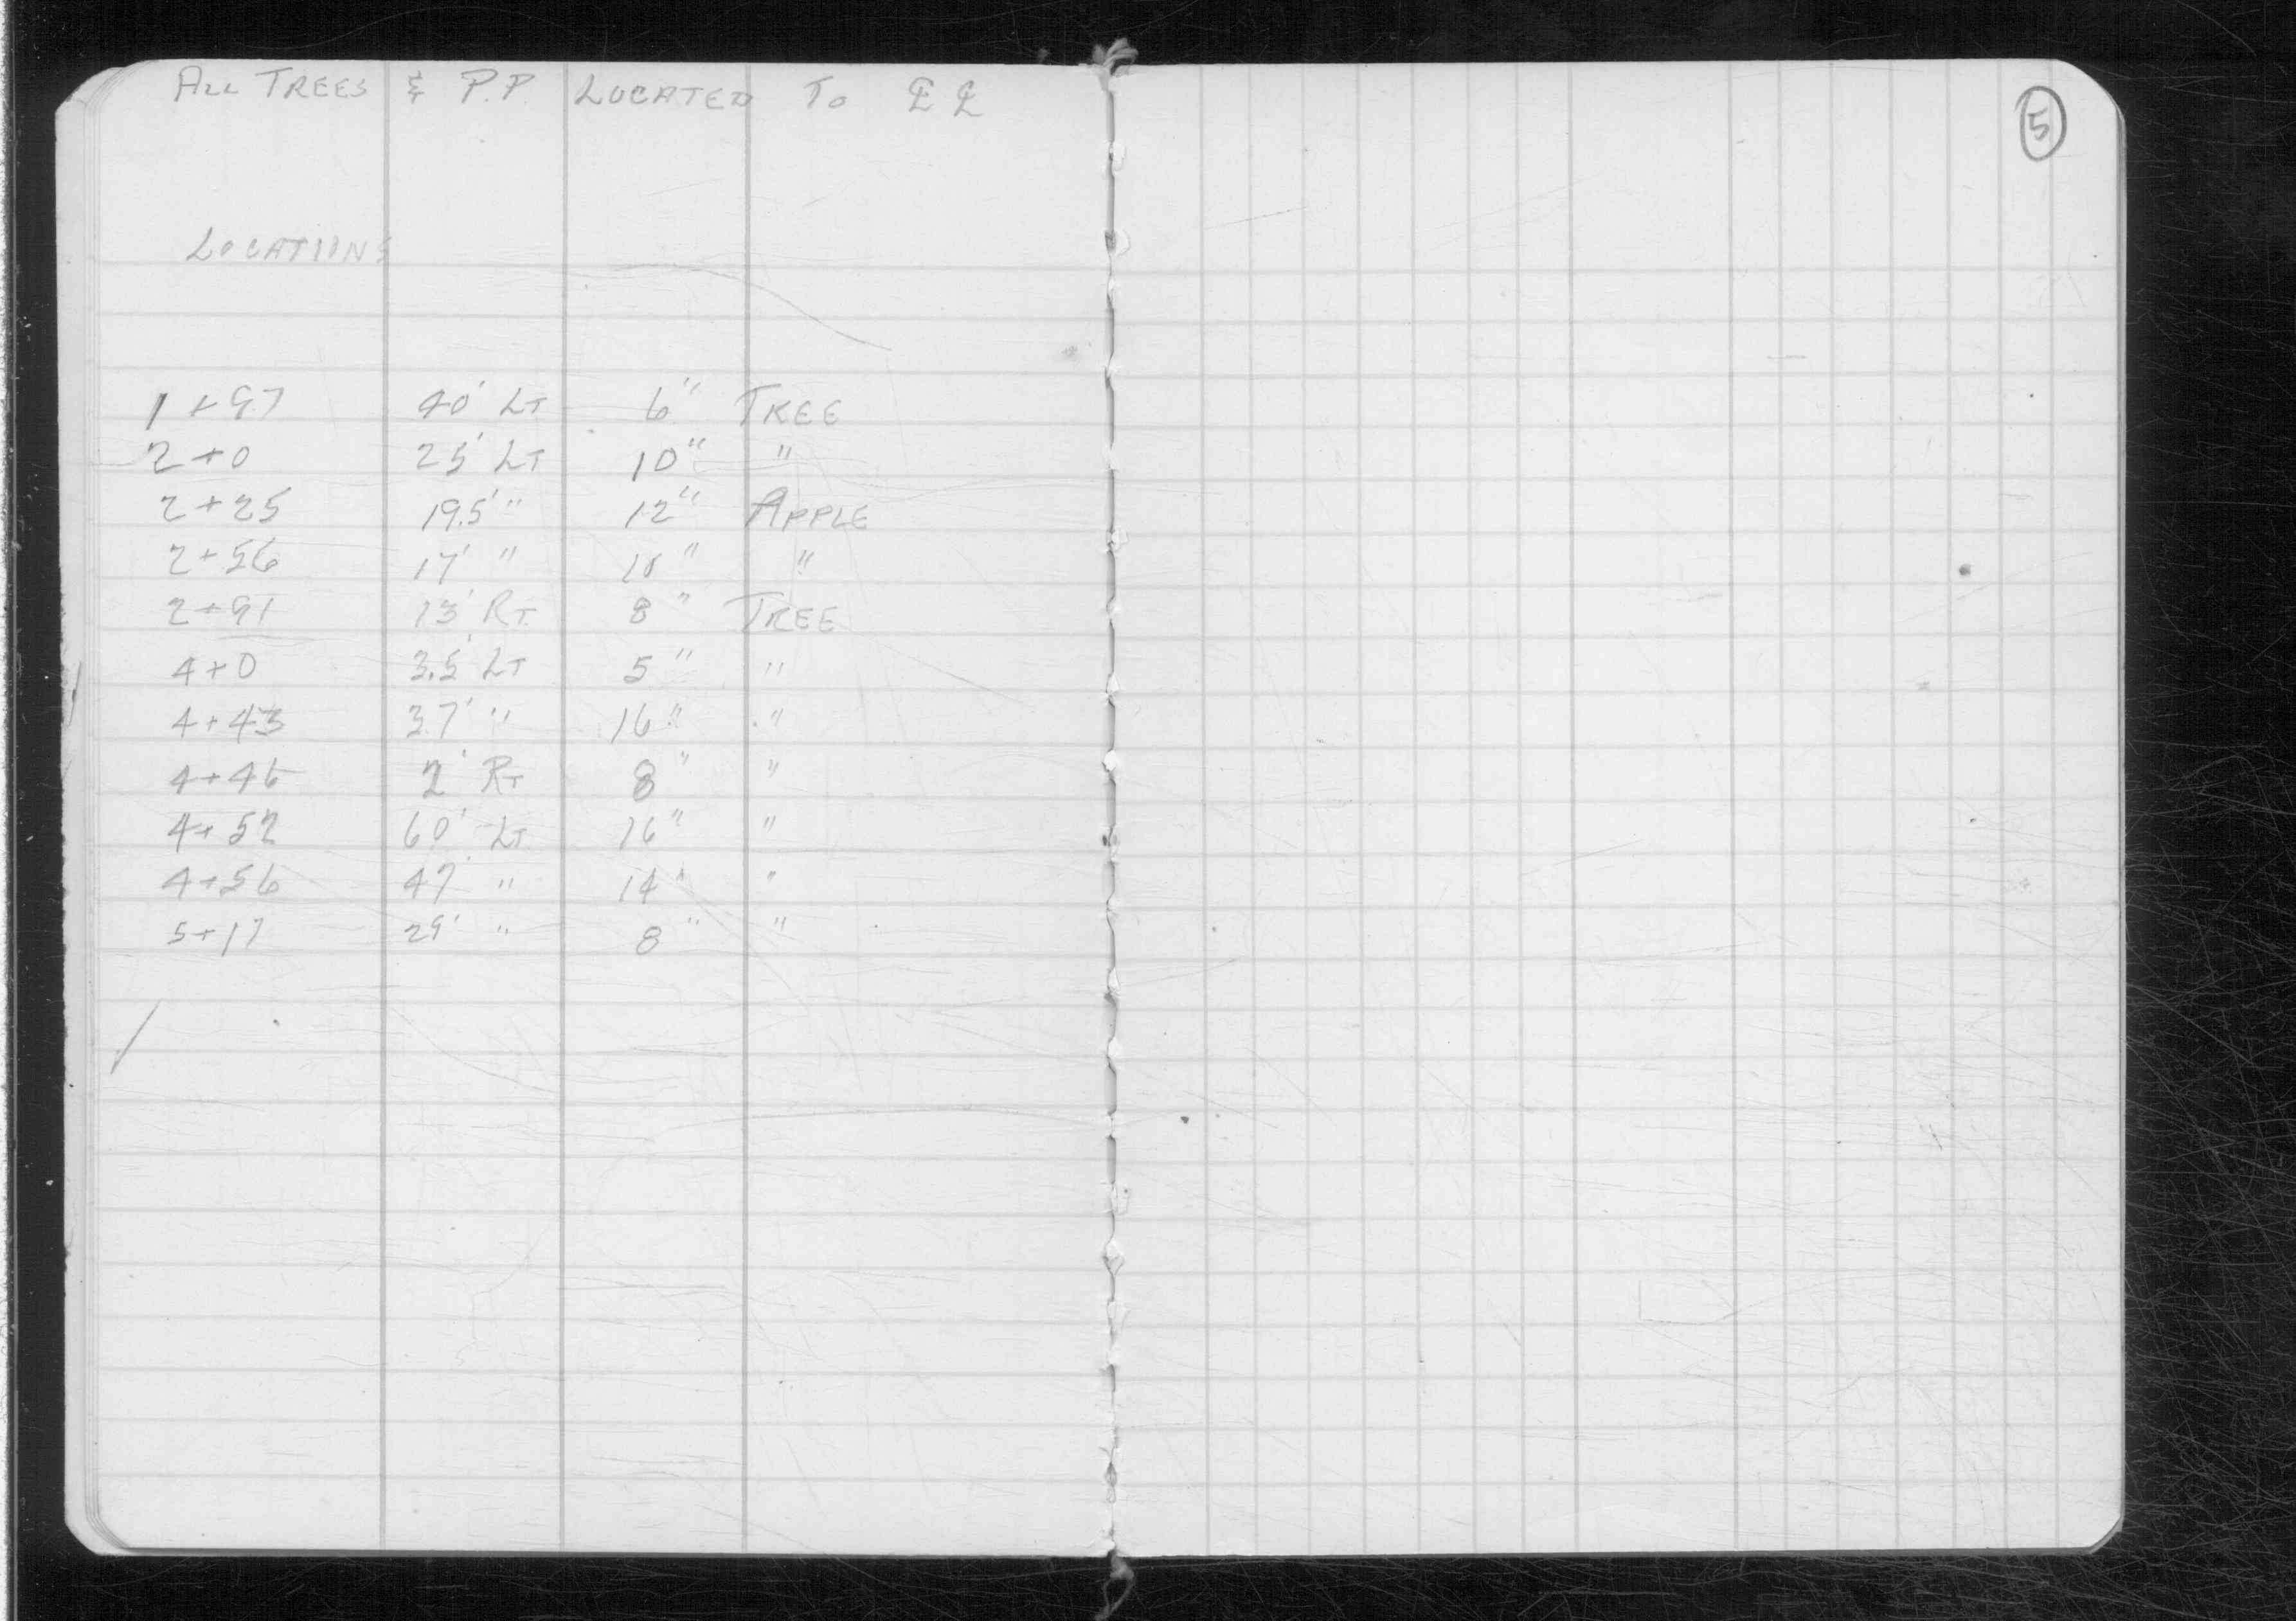 ALL TREES & P.P. LOCATED TO ℄ ℄
5
LOCATIONS
1+97 40' LT 6" TREE
2+0 25' LT 10" "
2+25 19.5' " 12" APPLE
2+56 17' " 10" "
2+91 13' RT 8" TREE
4+0 3.5' LT 5" "
4+43 37' " 16" "
4+46 2' RT 8" "
4+52 60' LT 16" "
4+56 47' " 14" "
5+17 29' " 8" "